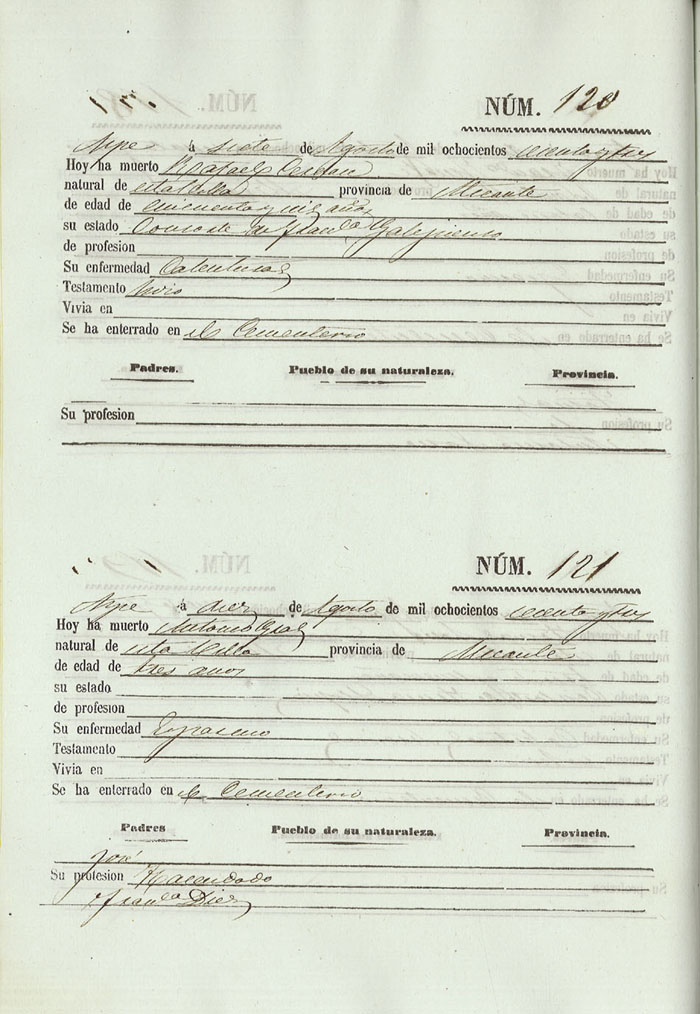 NÚM. 120
Aspe á siete de Agosto de mil ochocientos sesenta y tres
Hoy ha muerto Rafael
natural de esta Villa provincia de Alicante
de edad de cincuenta y seis años
su estado Consorte de Fran.ca
de profesion
Su enfermedad Calenturas
Testamento hizo
Vivia en
Se ha enterrado en el Cementerio
Padres. Pueblo de su naturaleza. Provincia.
Su profesion
NÚM. 121
Aspe á diez de Agosto de mil ochocientos sesenta y tres
Hoy ha muerto Antonio
natural de esta Villa provincia de Alicante
de edad de tres años
su estado
de profesion
Su enfermedad Espasmo
Testamento
Vivia en
Se ha enterrado en el Cementerio
Padres Pueblo de su naturaleza. Provincia.
José
Su profesion Hacendado
Fran.ca Diez